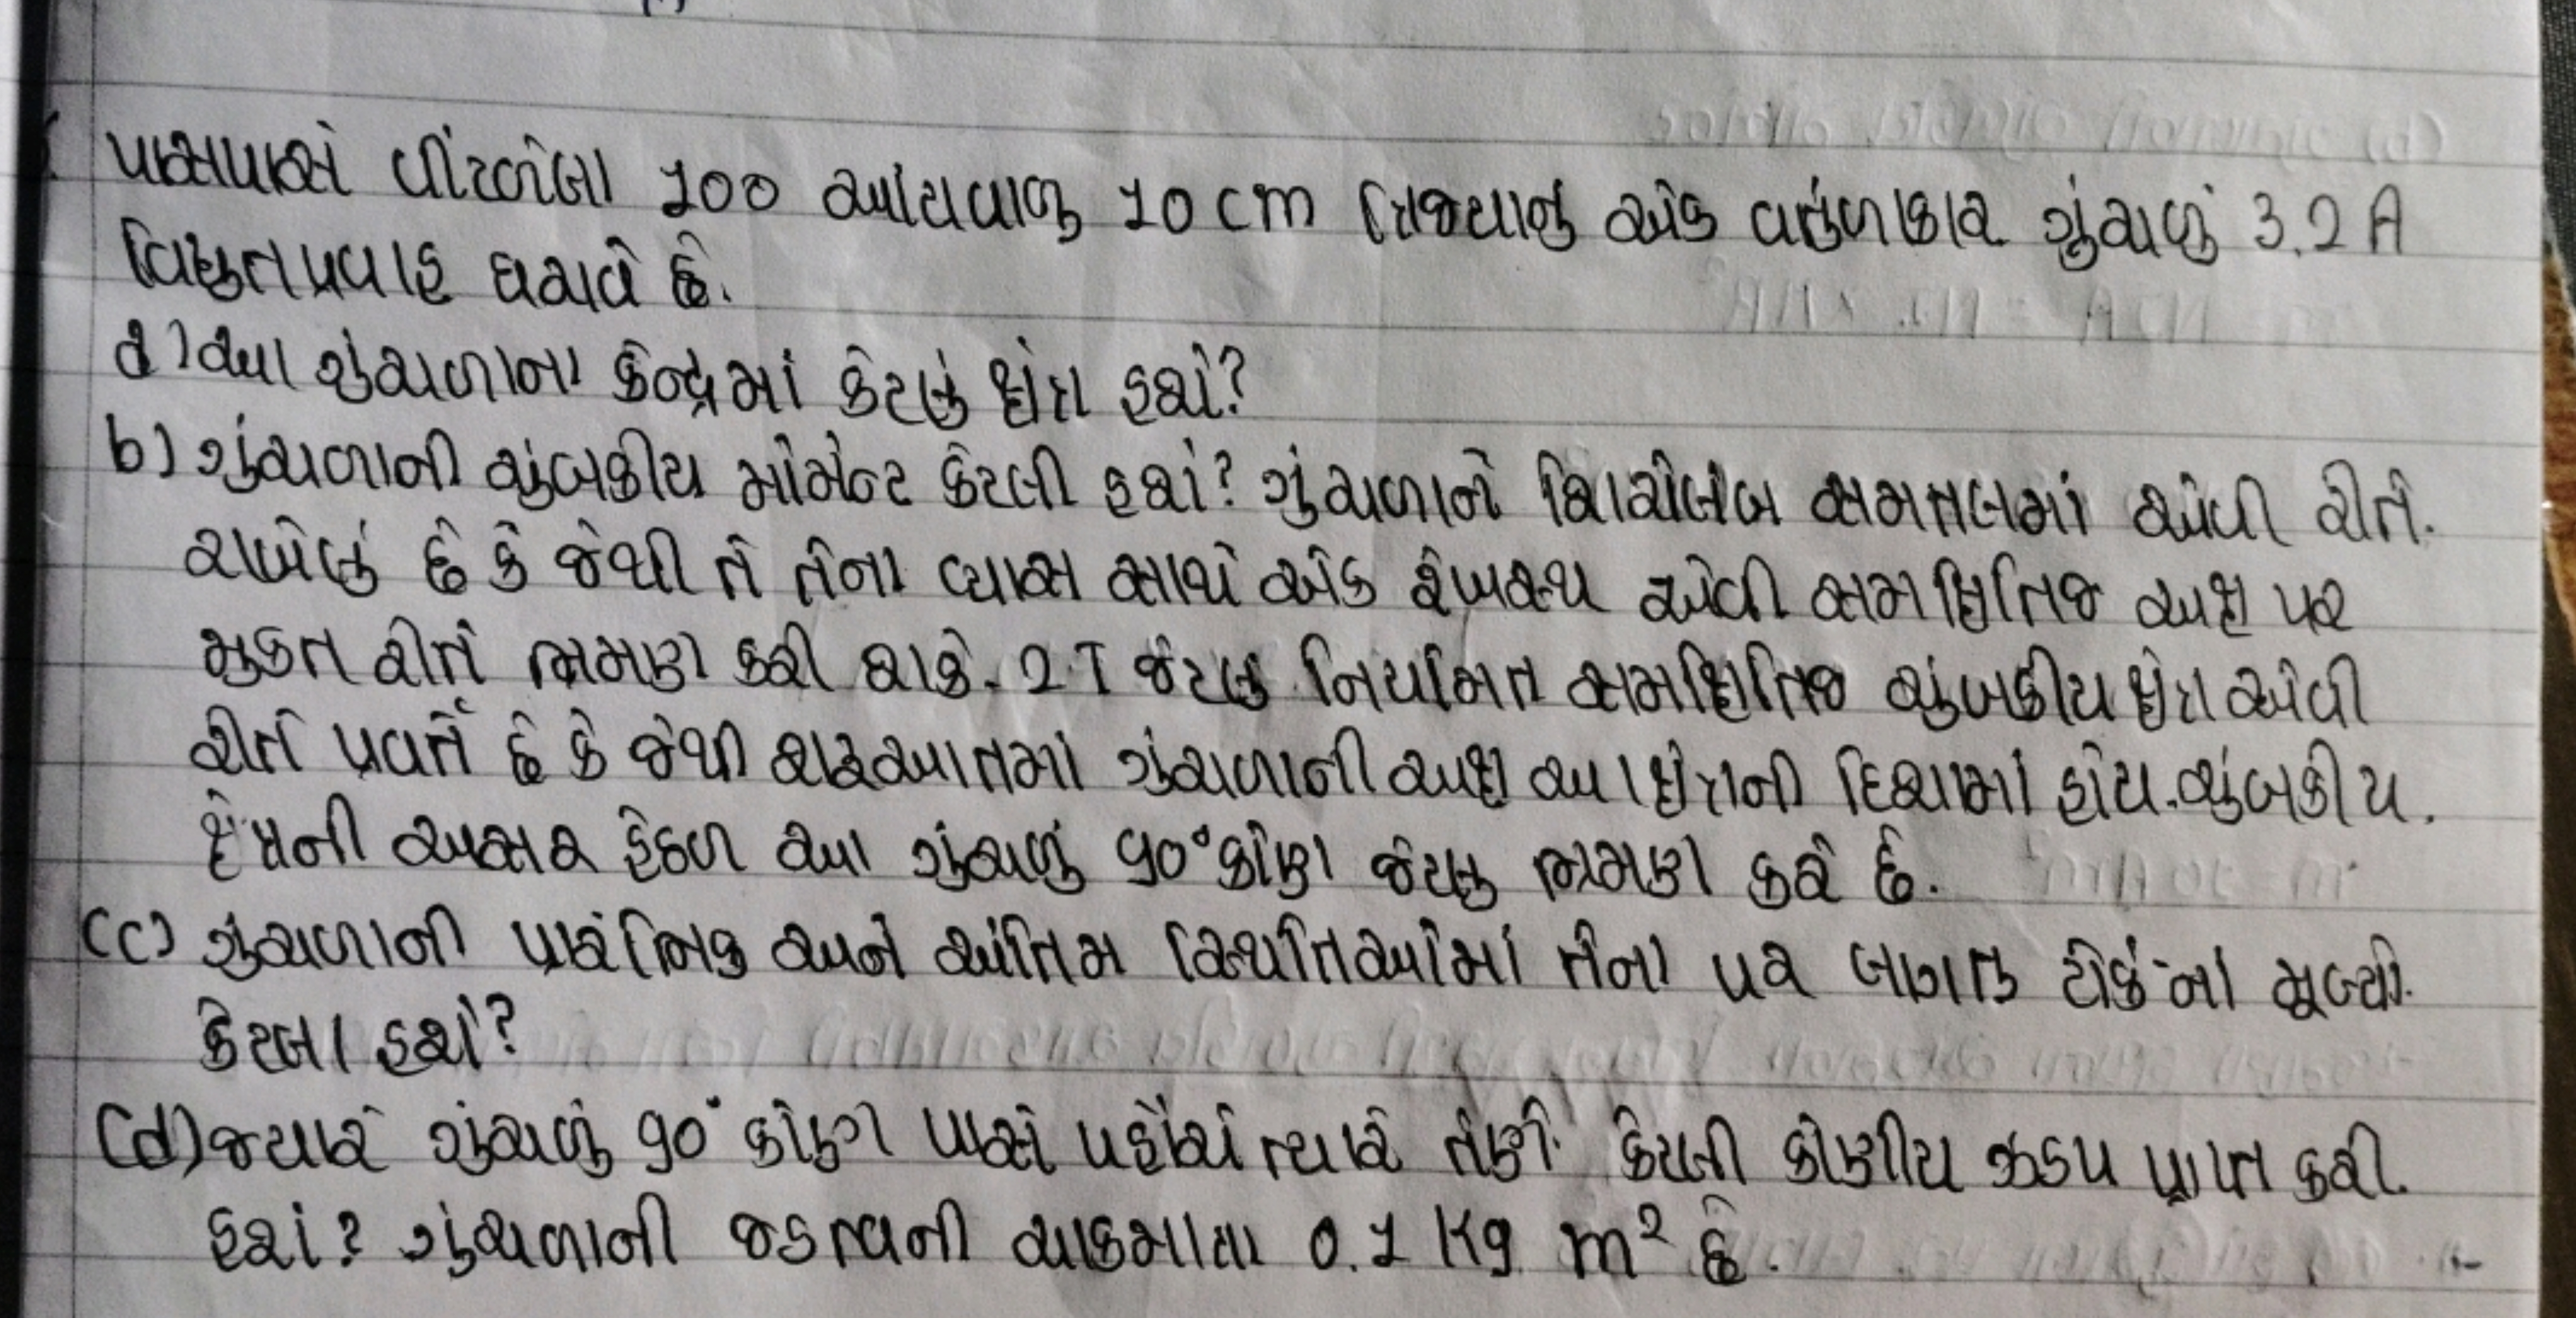 પાસપાસે વીંટળેલા 100 આંટાવાળુ 10 cm ત્રિજ્યાનું એક વર્તુળાકાર ગૂંચળું 3.2 A
વિદ્યુતપ્રવાહ ધરાવે છે.
a) આ ગુંચળાના કેન્દ્રમાં કેટલું ક્ષેત્ર હશે?
b) ગુંચળાની ચુંબકીય મોમેન્ટ કેટલી હશે? ગુંચળાને શિરોલંબ સમતલમાં એવી રીતે.
રાખેલું છે કે જેથી તે તેના વ્યાસ સાથે એક રેખસ્થ એવી સમક્ષિતિજ અક્ષ પર
મુકત રીતે ભ્રમણ કરી શકે. 2 T જેટલુ નિયમિત સમક્ષિતિજ ચુંબકીય ક્ષેત્ર એવી
રીતે પ્રવર્તે છે કે જેથી શરૂઆતમાં ગુંચળાની અક્ષ આ ક્ષેત્રની દિશામાં હોય. ચુંબકીય.
ક્ષેત્રની અસર હેઠળ આ ગુંચળું 90° કોણ જેટલુ ભ્રમણ કરે છે.
(c) ગુંચળાની પ્રારંભિક અને અંતિમ સ્થિતિઓમાં તેના પર લાગતા ટોર્કનાં મૂલ્યો.
કેટલા હશે?
(d) જયારે ગુંચળું 90° કોણ પાસે પહોંચે ત્યારે તેણે કેટલી કોણીય ઝડપ પ્રાપ્ત કરી.
હશે? ગુંચળાની જડત્વની ચાકમાત્રા 0.1 Kg m² છે.